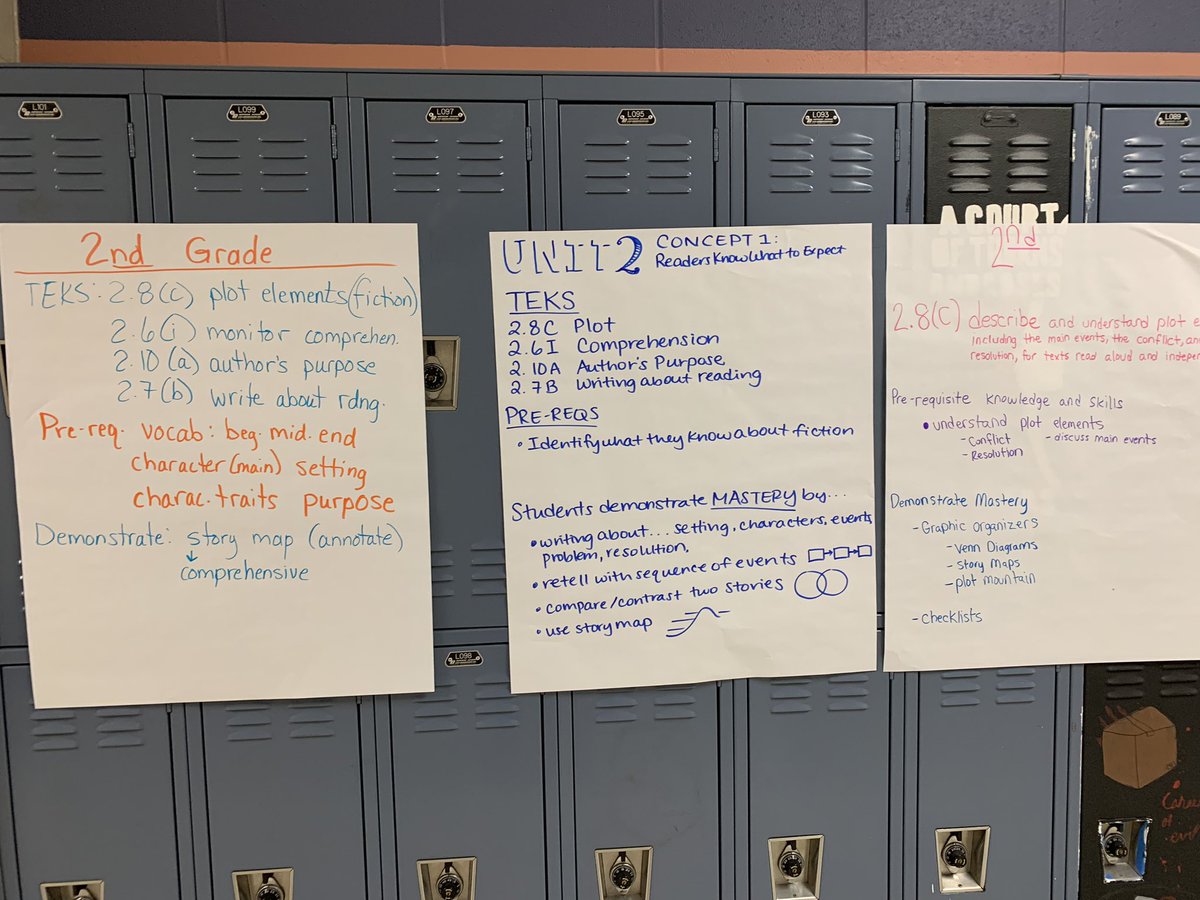 L101
L099
L097
L095
L093
L089
A COURT
2nd Grade
TEKS: 2.8(c) plot elements (fiction)
2.6(i) monitor comprehen.
2.10(a) author's purpose
2.7(b) write about rdng.
Pre-req. vocab: beg. mid. end
character (main) setting
charac. traits purpose
Demonstrate: story map (annotate)
comprehensive
UNIT 2
CONCEPT 1:
Readers Know What to Expect
TEKS
2.8C Plot
2.6I Comprehension
2.10A Author's Purpose
2.7B Writing about reading
PRE-REQS
• Identify what they know about fiction
Students demonstrate MASTERY by...
• writing about... setting, characters, events,
problem, resolution.
• retell with sequence of events
• compare/contrast two stories
• use story map
2nd
2.8(C) describe and understand plot e
including the main events, the conflict, an
resolution, for texts read aloud and indepe
Pre-requisite knowledge and skills
• understand plot elements
- Conflict - discuss main events
- Resolution
Demonstrate Mastery
- Graphic organizers
- Venn Diagrams
- Story Maps
- plot mountain
- Checklists
L098
of